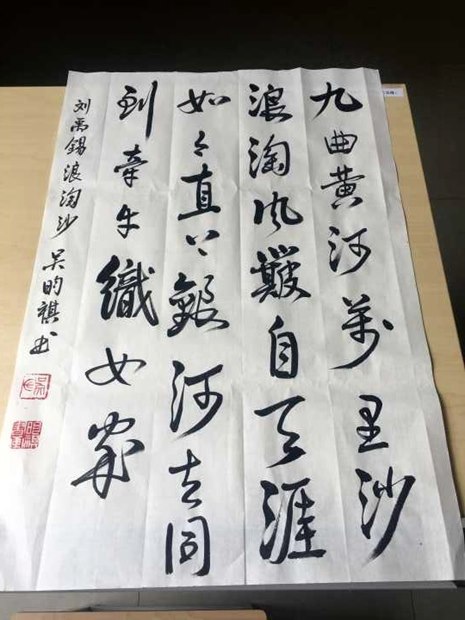 九曲黄河萬里沙
浪淘风簸自天涯
如今直上銀河去同
到牽牛織女家
刘禹锡浪淘沙 吴昀祺书